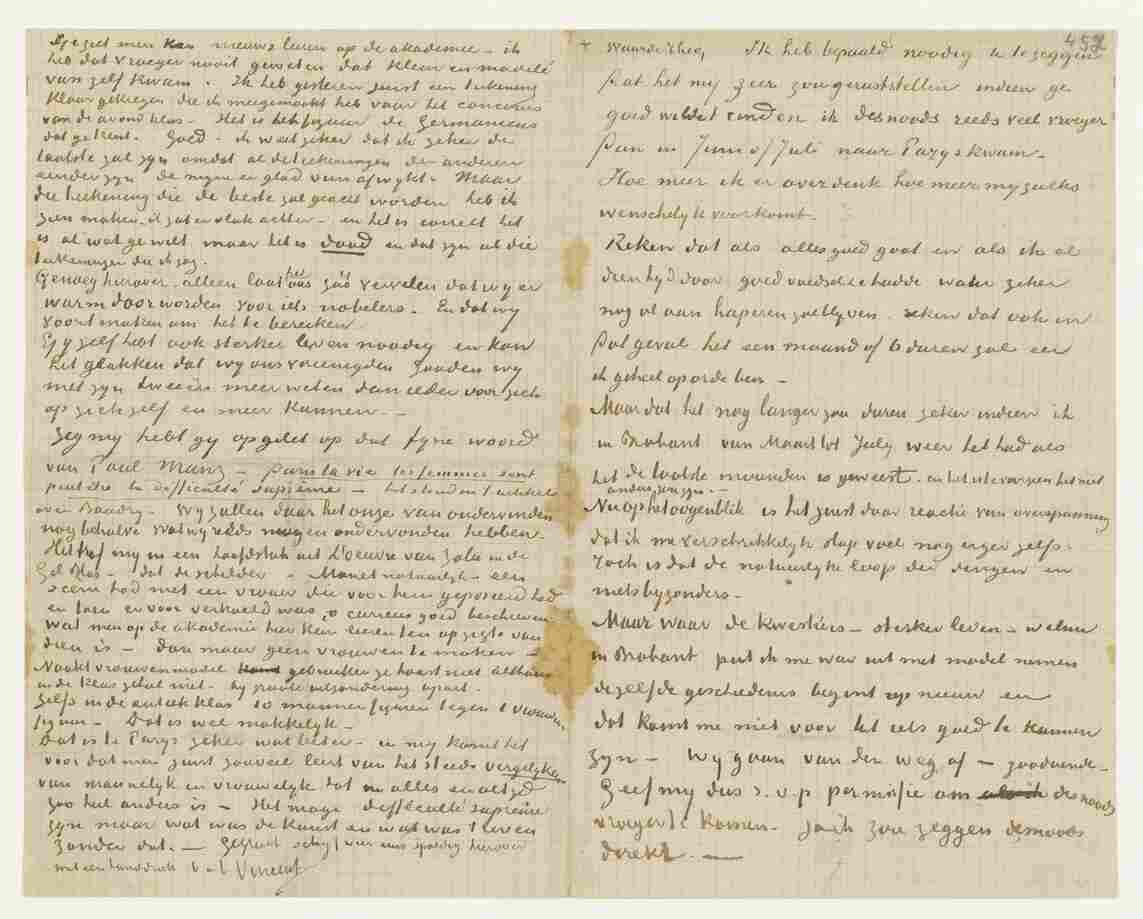 Ge ziet men kan nieuws leeren op de akademie – ik
heb dat vroeger nooit geweten dat kleur en modelé
van zelf kwam. Ik heb gisteren juist een teekening
klaar gekregen die ik meegemaakt heb voor het concours
van de avondklas. Het is het figuur de Germanicus
dat ge kent. Goed – ik weet zeker dat ik zeker de
laatste zal zyn omdat al de teekeningen der anderen
eender zyn de myne en glad van afwykt. Maar
die teekening die de beste zal geacht worden heb ik
zien maken, ik zat er vlak achter – en het is correct het
is al wat ge wilt maar het is dood en dat zyn al die
teekeningen die ik zag.
Genoeg hierover. alleen laat het ons zóó vervelen dat wy er
warm door worden voor iets nobelers. En dat wy
voortmaken om het te bereiken.
Gy zelf hebt ook sterker leven noodig en kon
het gelukken dat wy ons vereenigden zouden wy
met zyn tweeën meer weten dan ieder voor zich
op zichzelf en meer kunnen. –
Zeg my hebt gy op gelet op dat fyne woord
van Paul Mantz – dans la vie les femmes sont
peut être la difficulté suprème – het stond in 't artikel
over Baudry. Wy zullen daar het onze van ondervinden
nog behalve wat wy reeds mogen ondervonden hebben.
Het trof my in een hoofdstuk uit L'oeuvre van Zola in de
Gil Blas – dat de schilder – Manet natuurlyk – een
scene had met een vrouw die voor hem geposeerd had
en later er voor verkoeld was, o curieus goed beschreven.
Wat men op de akademie hier kan leeren ten op zigte van
dien is – daar maar geen vrouwen te maken –
Naakt vrouwenmodel gebruiken ze haast niet althans
in de klas geheel niet. by groote uitzondering apart.
Zelfs in de antiekklas 10 mannenfiguren tegen 1 vrouwen
figuur. Dat is wel makkelyk. –
Dat is te Parys zeker wat beter – en my komt het
voor dat men juist zooveel leert van het steeds vergelyken
van mannelyk en vrouwelyk dat in alles en altyd
zoo heel anders is – Het moge difficulté suprème
zyn maar wat was de kunst en wat was 't leven
zonder dat. – Gegroet schryf my eens spoedig hierover
met een handdruk t. à t. Vincent
452
Waarde Theo, Ik heb bepaald noodig u te zeggen
dat het my zeer zou geruststellen indien ge
goed wildet vinden ik desnoods reeds veel vroeger
dan in Juni of Juli naar Parys kwam.
Hoe meer ik er over denk hoe meer my zulks
wenschelyk voorkomt.
Reken dat als alles goed gaat en als ik al
dien tyd door goed voedsel etc hadde wat er zeker
nog al aan haperen zal blyven. reken dat ook in
dat geval het een maand of 6 duren zal eer
ik geheel op orde ben –
Maar dat het nog langer zou duren zeker indien ik
in Brabant van Maart tot July weer het had als
het de laatste maanden is geweest. en het is te voorzien het niet
anders zou zyn. –
Nu op het oogenblik is het juist door reactie van overspanning
dat ik me verschrikkelyk slap voel nog erger zelfs.
Toch is dat de natuurlyke loop der dingen en
niets byzonders.
Maar waar de kwestie is – sterker leven – welnu
in Brabant put ik me weer uit met model nemen
dezelfde geschiedenis begint op nieuw en
dat komt me niet voor het iets goed te kunnen
zyn – Wy gaan van den weg af – zoodoende –
Geef my dus s.v.p. permissie om desnoods
vroeger te komen. Ja ik zou zeggen desnoods
direkt. –